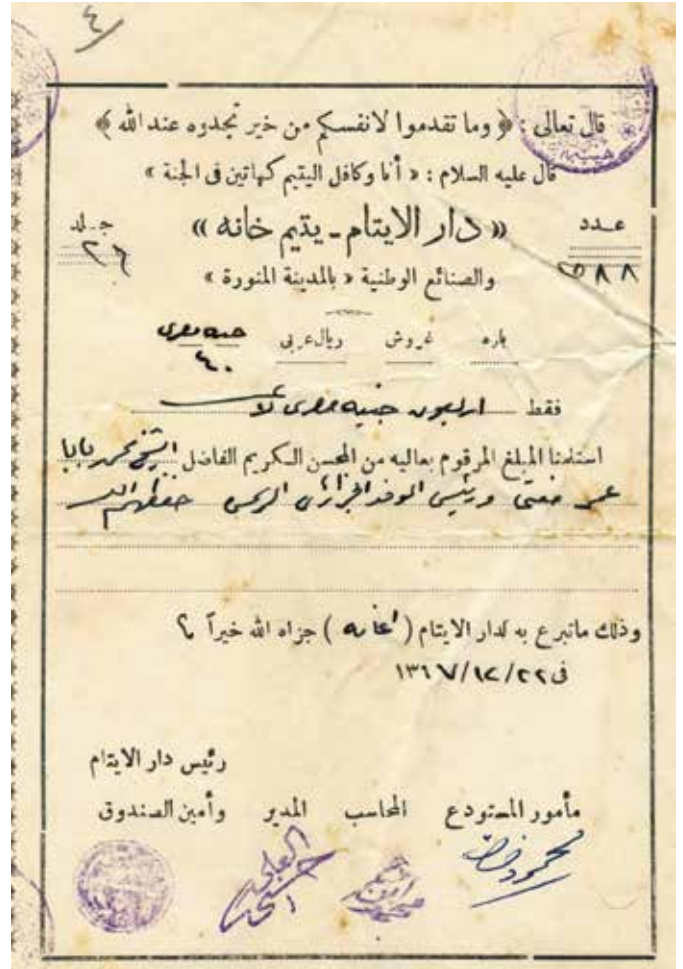 ٤
قال تعالى : ﴿ وما تقدموا لانفسكم من خير تجدوه عند الله ﴾
قال عليه السلام : « أنا وكافل اليتيم كهاتين فى الجنة »
عدد « دار الايتام ـ يتيم خانه » جلد
٢٥٨٨ والصنائع الوطنية « بالمدينة المنورة » ٢٦
باره غروش ريال عربى جنيه مصرى
٤٠
فقط اربعون جنيه مصرى لاغير
استلمنا المبلغ المرقوم بعاليه من المحسن الكريم الفاضل الشيخ محمد بابا
عمر مفتى ورئيس الوفد الجزائرى الرسمى حفظهم الله
وذلك ماتبرع به لدار الايتام ( اعانه ) جزاه الله خيراً ؟
فى ١٣٦٧/١٢/٢٢
رئيس دار الايتام
مأمور المستودع المحاسب المدير وأمين الصندوق